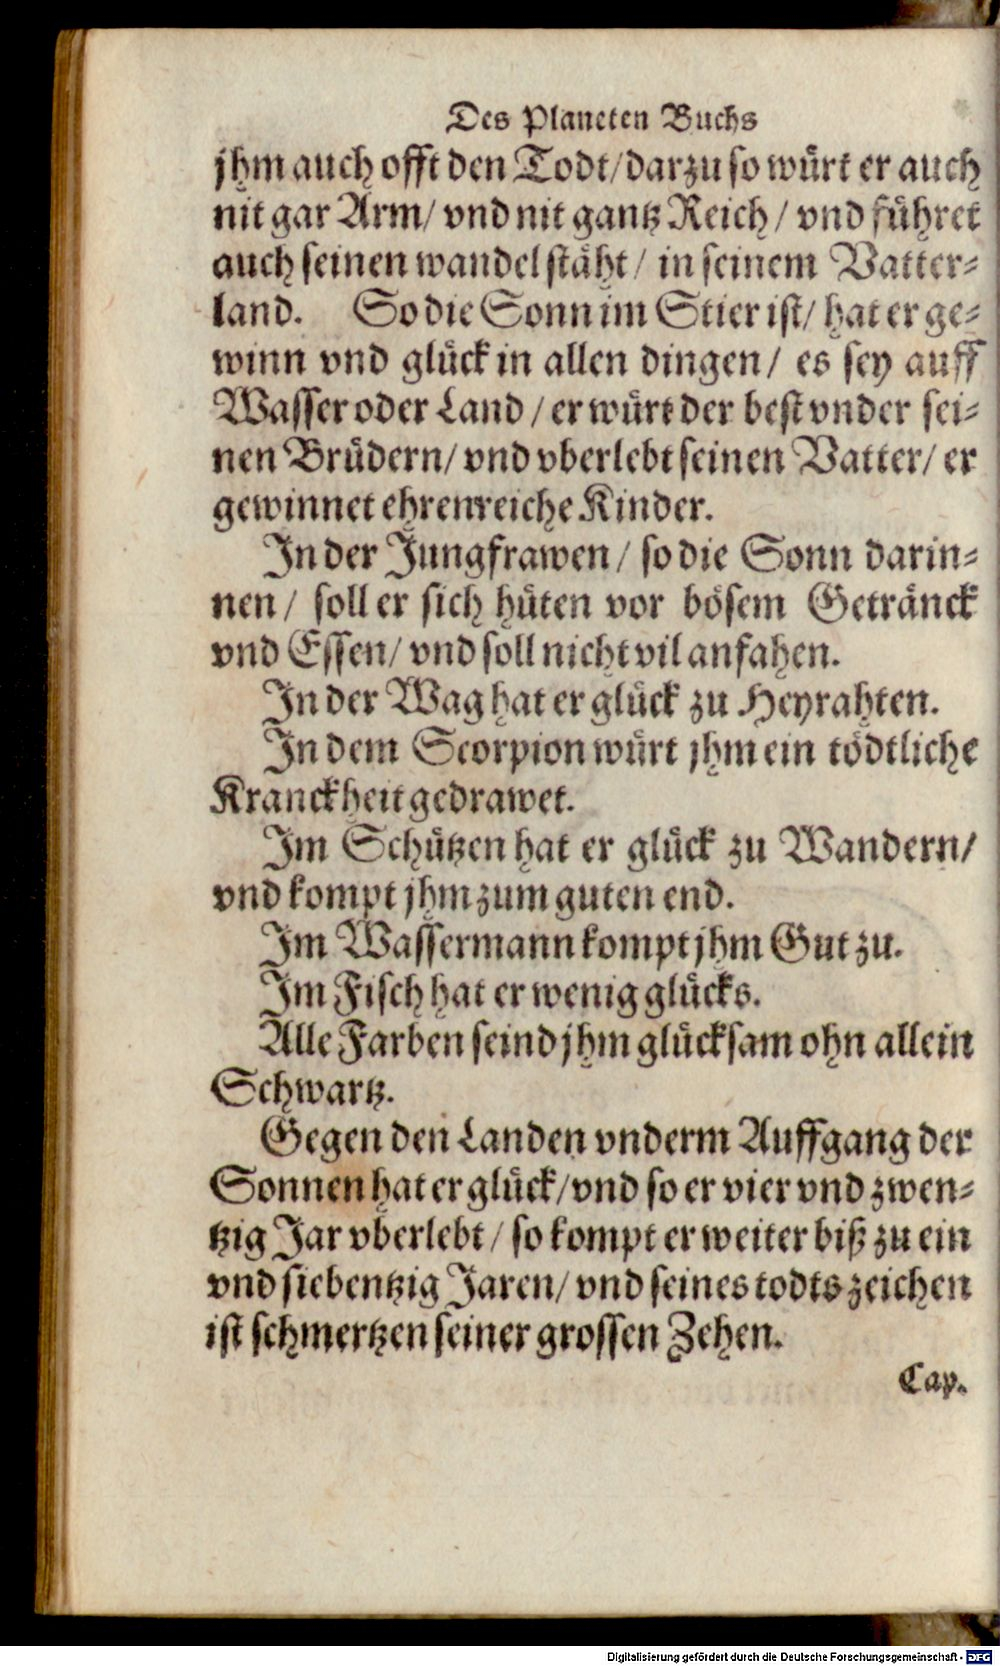 Des Planeten Buchs
jhm auch offt den Todt/ darzu so würt er auch
nit gar Arm/ vnd nit gantz Reich/ vnd führet
auch seinen wandel stäht/ in seinem Vatter-
land. So die Sonn im Stier ist/ hat er ge-
winn vnd glück in allen dingen/ es sey auff
Wasser oder Land/ er würt der best vnder sei-
nen Brüdern/ vnd vberlebt seinen Vatter/ er
gewinnet ehrenreiche Kinder.
In der Jungfrawen/ so die Sonn darin-
nen/ soll er sich hüten vor bösem Getränck
vnd Essen/ vnd soll nicht vil anfahen.
In der Wag hat er glück zu Heyrahten.
In dem Scorpion würt jhm ein tödtliche
Kranckheit gedrawet.
Im Schützen hat er glück zu Wandern/
vnd kompt jhm zum guten end.
Im Wassermann kompt jhm Gut zu.
Im Fisch hat er wenig glücks.
Alle Farben seind jhm glücksam ohn allein
Schwartz.
Gegen den Landen vnderm Auffgang der
Sonnen hat er glück/ vnd so er vier vnd zwen-
tzig Jar vberlebt/ so kompt er weiter biß zu ein
vnd siebentzig Jaren/ vnd seines todts zeichen
ist schmertzen seiner grossen Zehen.
Cap.
Digitalisierung gefördert durch die Deutsche Forschungsgemeinschaft - DFG